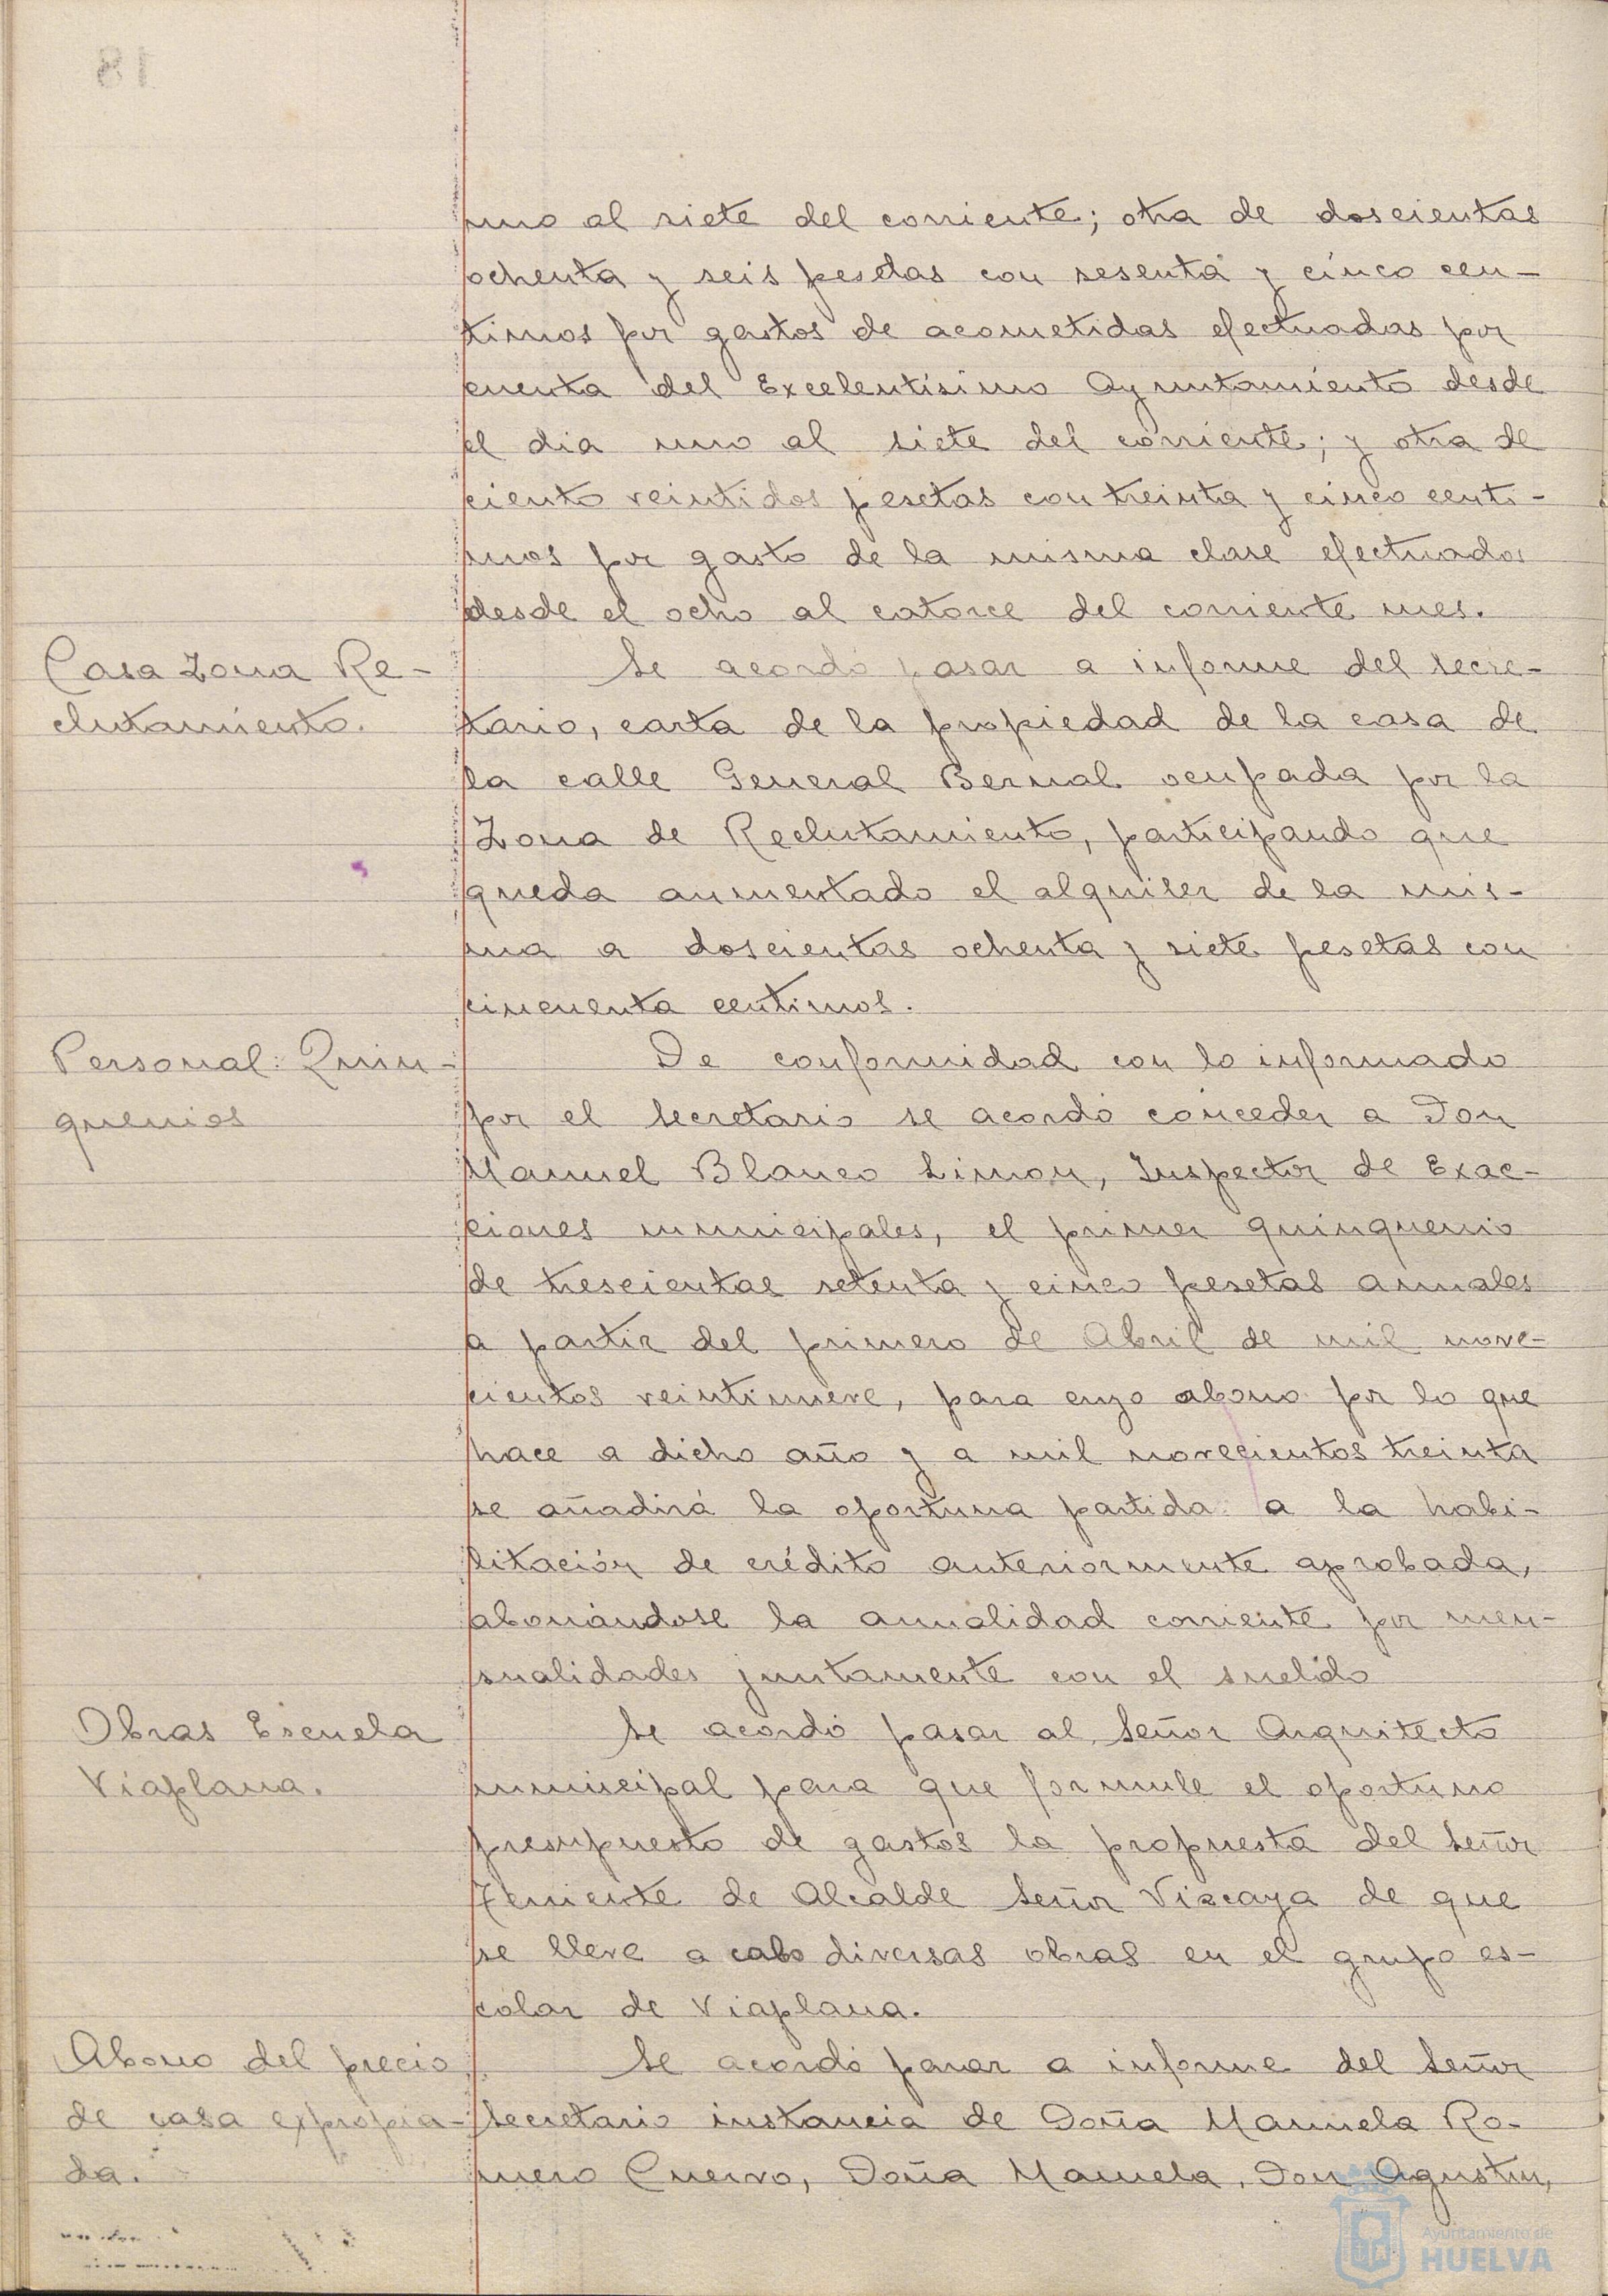 18
uno al siete del corriente; otra de doscientas
ochenta y seis pesetas con sesenta y cinco cen-
timos por gastos de acometidas efectuadas por
cuenta del Excelentísimo Ayuntamiento desde
el dia uno al siete del corriente; y otra de
ciento veintidos pesetas con treinta y cinco centi-
mos por gasto de la misma clase efectuados
desde el ocho al catorce del corriente mes.
Casa Zona Re-
clutamiento.
Se acordó pasar a informe del secre-
tario, carta de la propiedad de la casa de
la calle General Bernal ocupada por la
Zona de Reclutamiento, participando que
queda aumentado el alquiler de la mis-
ma a doscientas ochenta y siete pesetas con
cincuenta centimos.
Personal: Quin-
quenios
De conformidad con lo informado
por el Secretario se acordó conceder a Don
Manuel Blanco Limon, Inspector de Exac-
ciones municipales, el primer quinquenio
de trescientas setenta y cinco pesetas anuales
a partir del primero de Abril de mil nove-
cientos veintinueve, para cuyo abono por lo que
hace a dicho año y a mil novecientos treinta
se añadirá la oportuna partida a la habi-
litación de crédito anteriormente aprobada,
abonándose la anualidad corriente por men-
sualidades juntamente con el sueldo
Obras Escuela
Viaplana.
Se acordó pasar al Señor Arquitecto
municipal para que formule el oportuno
presupuesto de gastos la propuesta del Señor
Teniente de Alcalde Señor Vizcaya de que
se lleve a cabo diversas obras en el grupo es-
colar de Viaplana.
Abono del precio
de casa expropia-
da.
Se acordó pasar a informe del Señor
Secretario instancia de Doña Manuela Ro-
mero Cuervo, Doña Manuela, Don Agustin,
Ayuntamiento de
HUELVA